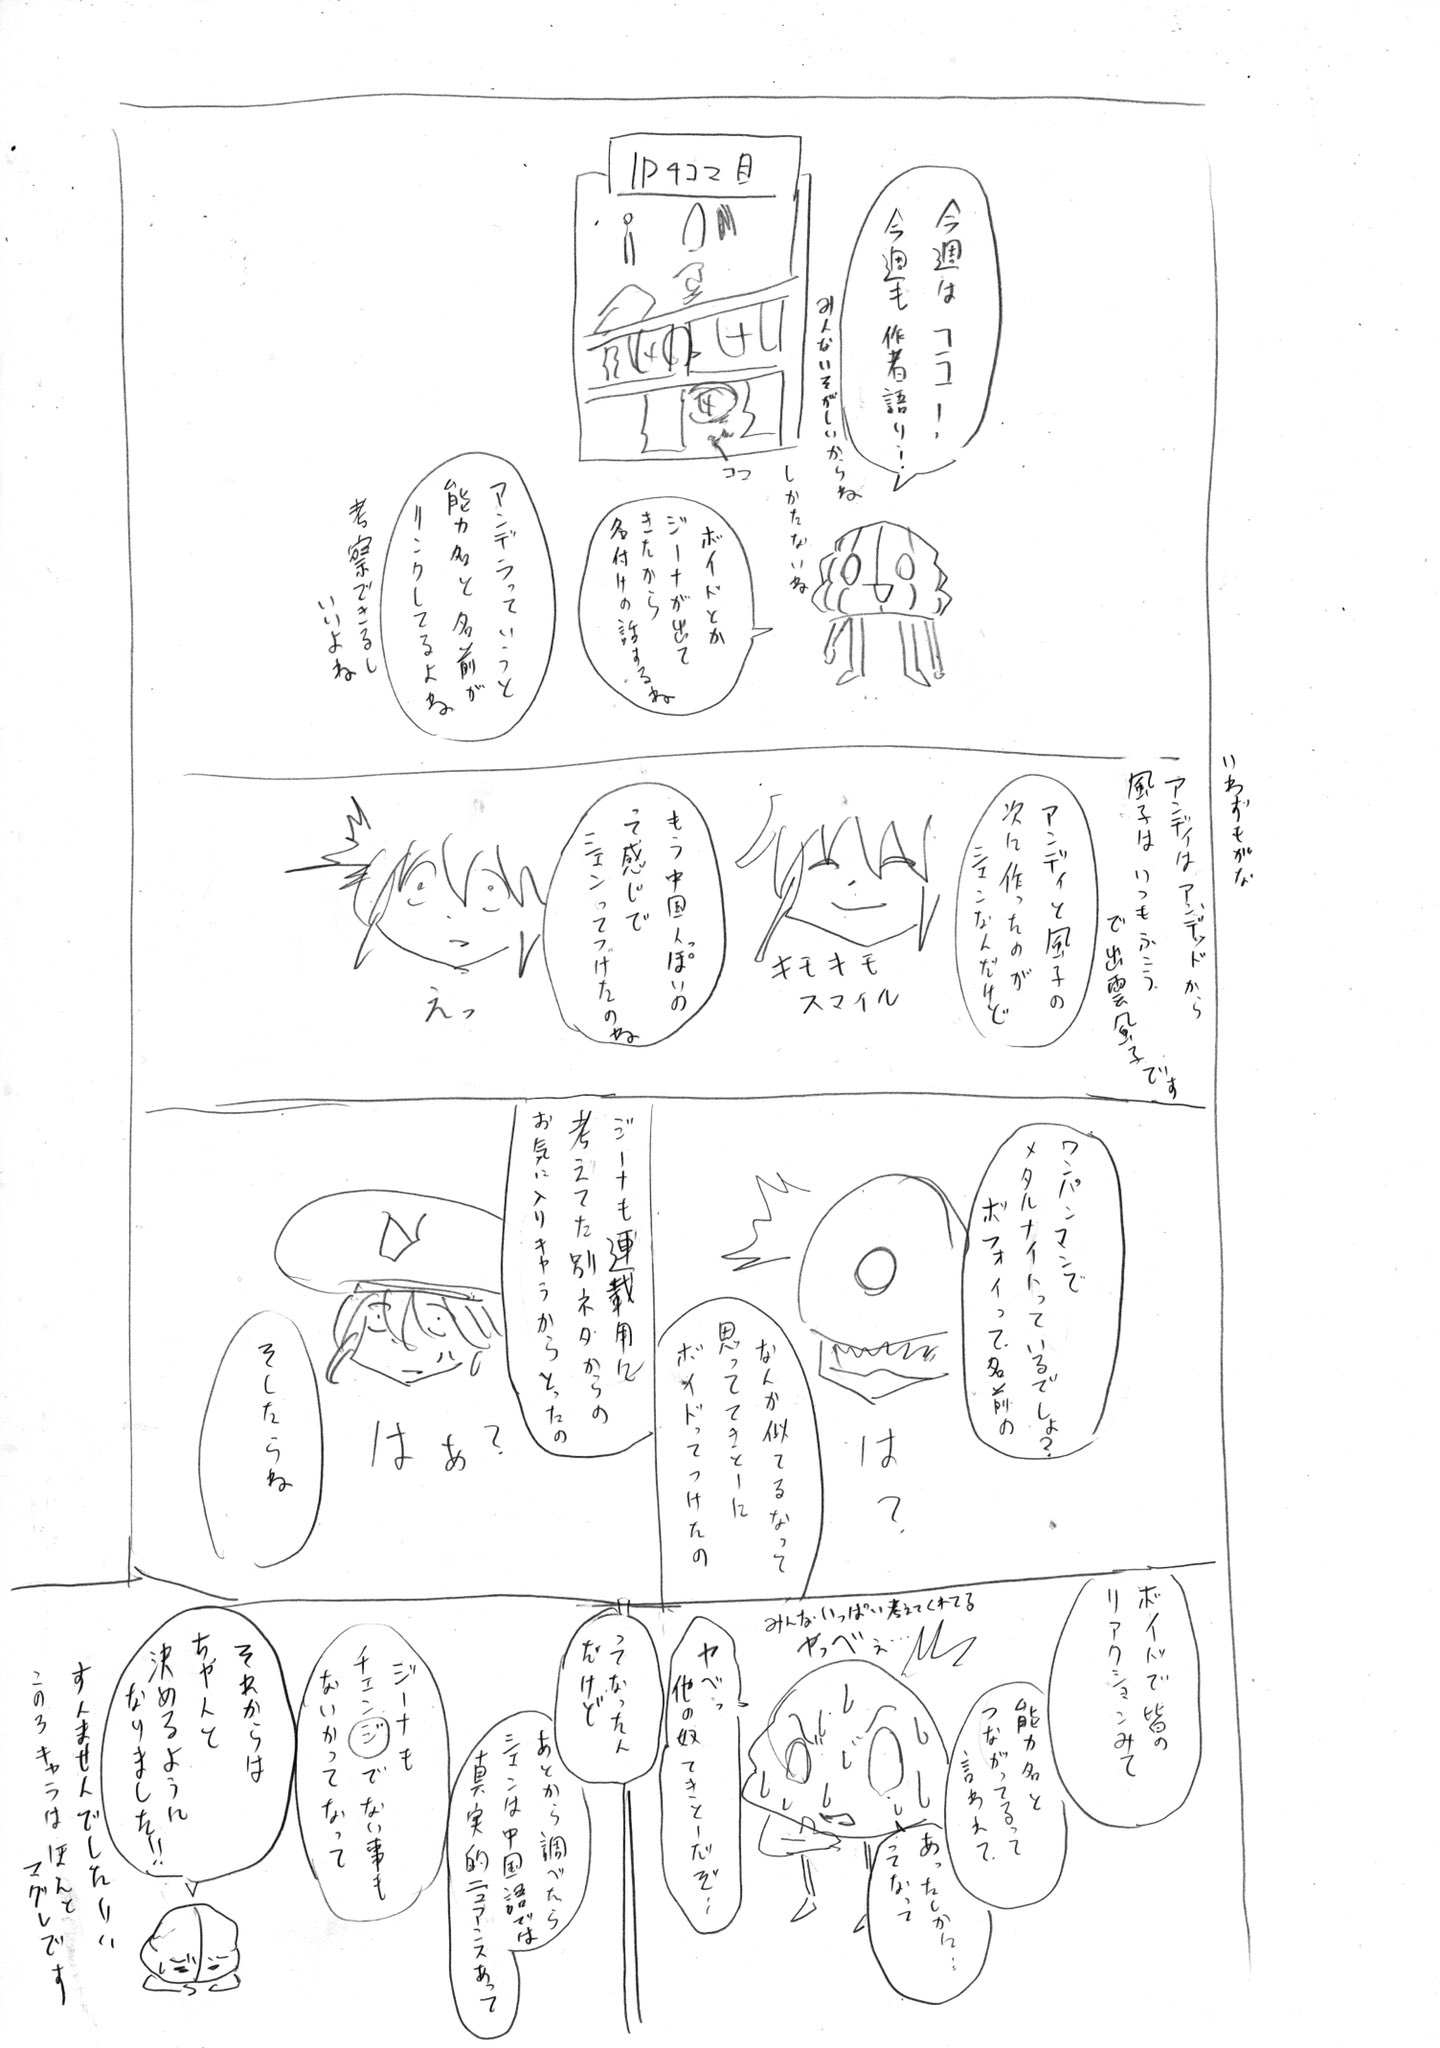 今週はココ!
今週も作者語り!
みんないそがしいからね
しかたないね
1P4コマ目
ココ
ボイドとか
ジーナが出て
きたから
名付けの話するね
アンデラっていうと
能力名と名前が
リンクしてるよね
考察できるし
いいよね
いわずもがな
アンディはアンデッドから
風子はいつもふこう
で出雲風子です
アンディと風子の
次に作ったのが
シェンなんだけど
キモキモ
スマイル
もう中国人っぽいの
って感じで
シェンってつけたのね
えっ
ワンパンマンで
メタルナイトっているでしょ?
ボフォイって名前の
なんか似てるなって
思っててきとーに
ボイドってつけたの
は?
ジーナも連載用に
考えてた別ネタからの
お気に入りキャラからとったの
はぁ?
そしたらね
ボイドで皆の
リアクションみて
能力名と
つながってるって
言われて
あったしかに…
ってなって
みんないっぱい考えてくれてる
やっべぇ…
ヤベっ
他の奴てきとーだぞ…
ってなったん
だけど
あとから調べたら
シェンは中国語では
真実的ニュアンスあって
ジーナも
チェンジでない事も
ないかってなって
それからは
ちゃんと
決めるように
なりました!!
すんませんでした!!!
このころキャラはほんと
マグレです